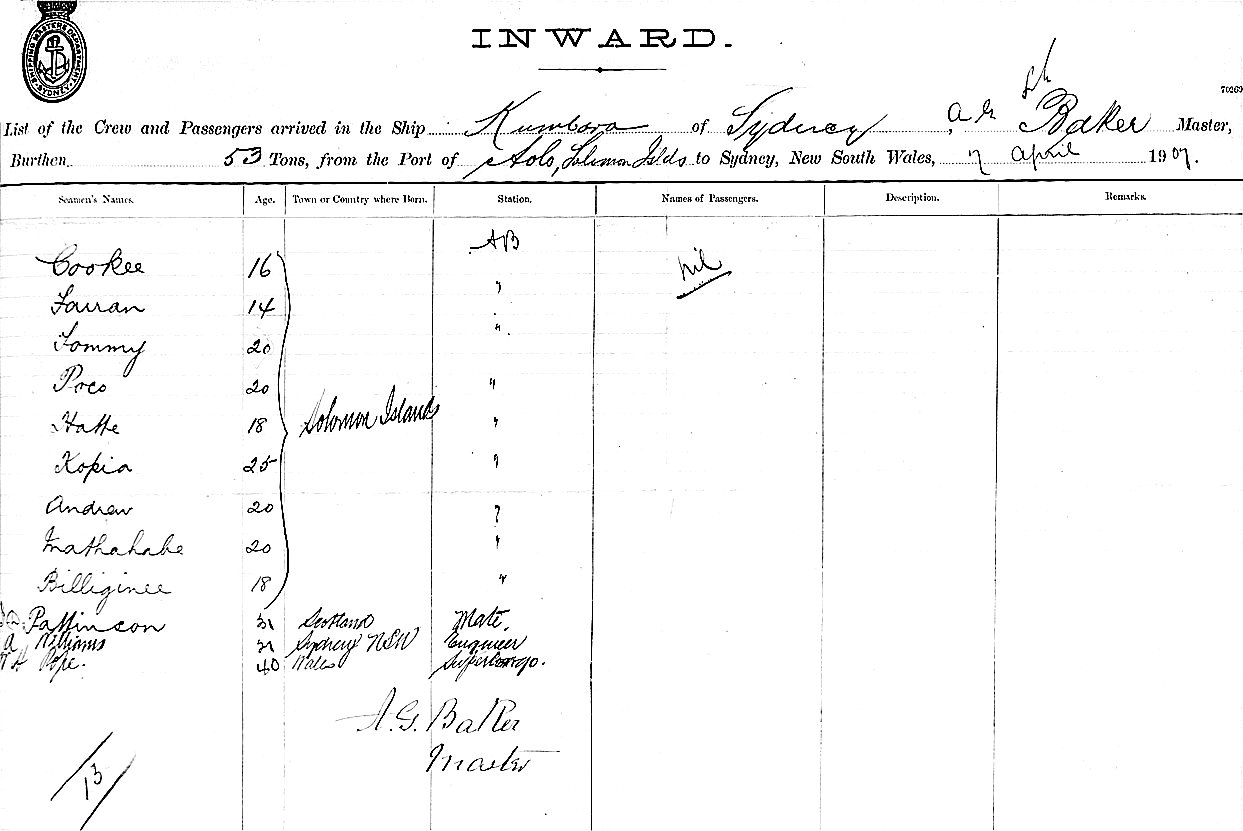 SHIPPING MASTERS DEPARTMENT SYDNEY
INWARD.
70269
List of the Crew and Passengers arrived in the Ship Kumbara of Sydney A.G. Baker Master,
Burthen 53 Tons, from the Port of Aolo, Solomon Islds to Sydney, New South Wales, 7 April 1907.
Seamen's Names. Age. Town or Country where Born. Station. Names of Passengers. Description. Remarks.
Cookee 16 AB nil
14 "
Tommy 20 "
Poco 20 "
18 Solomon Islands "
Kopia 25 "
Andrew 20 "
Mathahabe 20 "
Billiginee 18 "
Pattinson 31 Scotland Mate.
A Williams 31 Sydney NSW Engineer
Pope. 40 Wales Supercargo.
A.G. Baker
Master
13